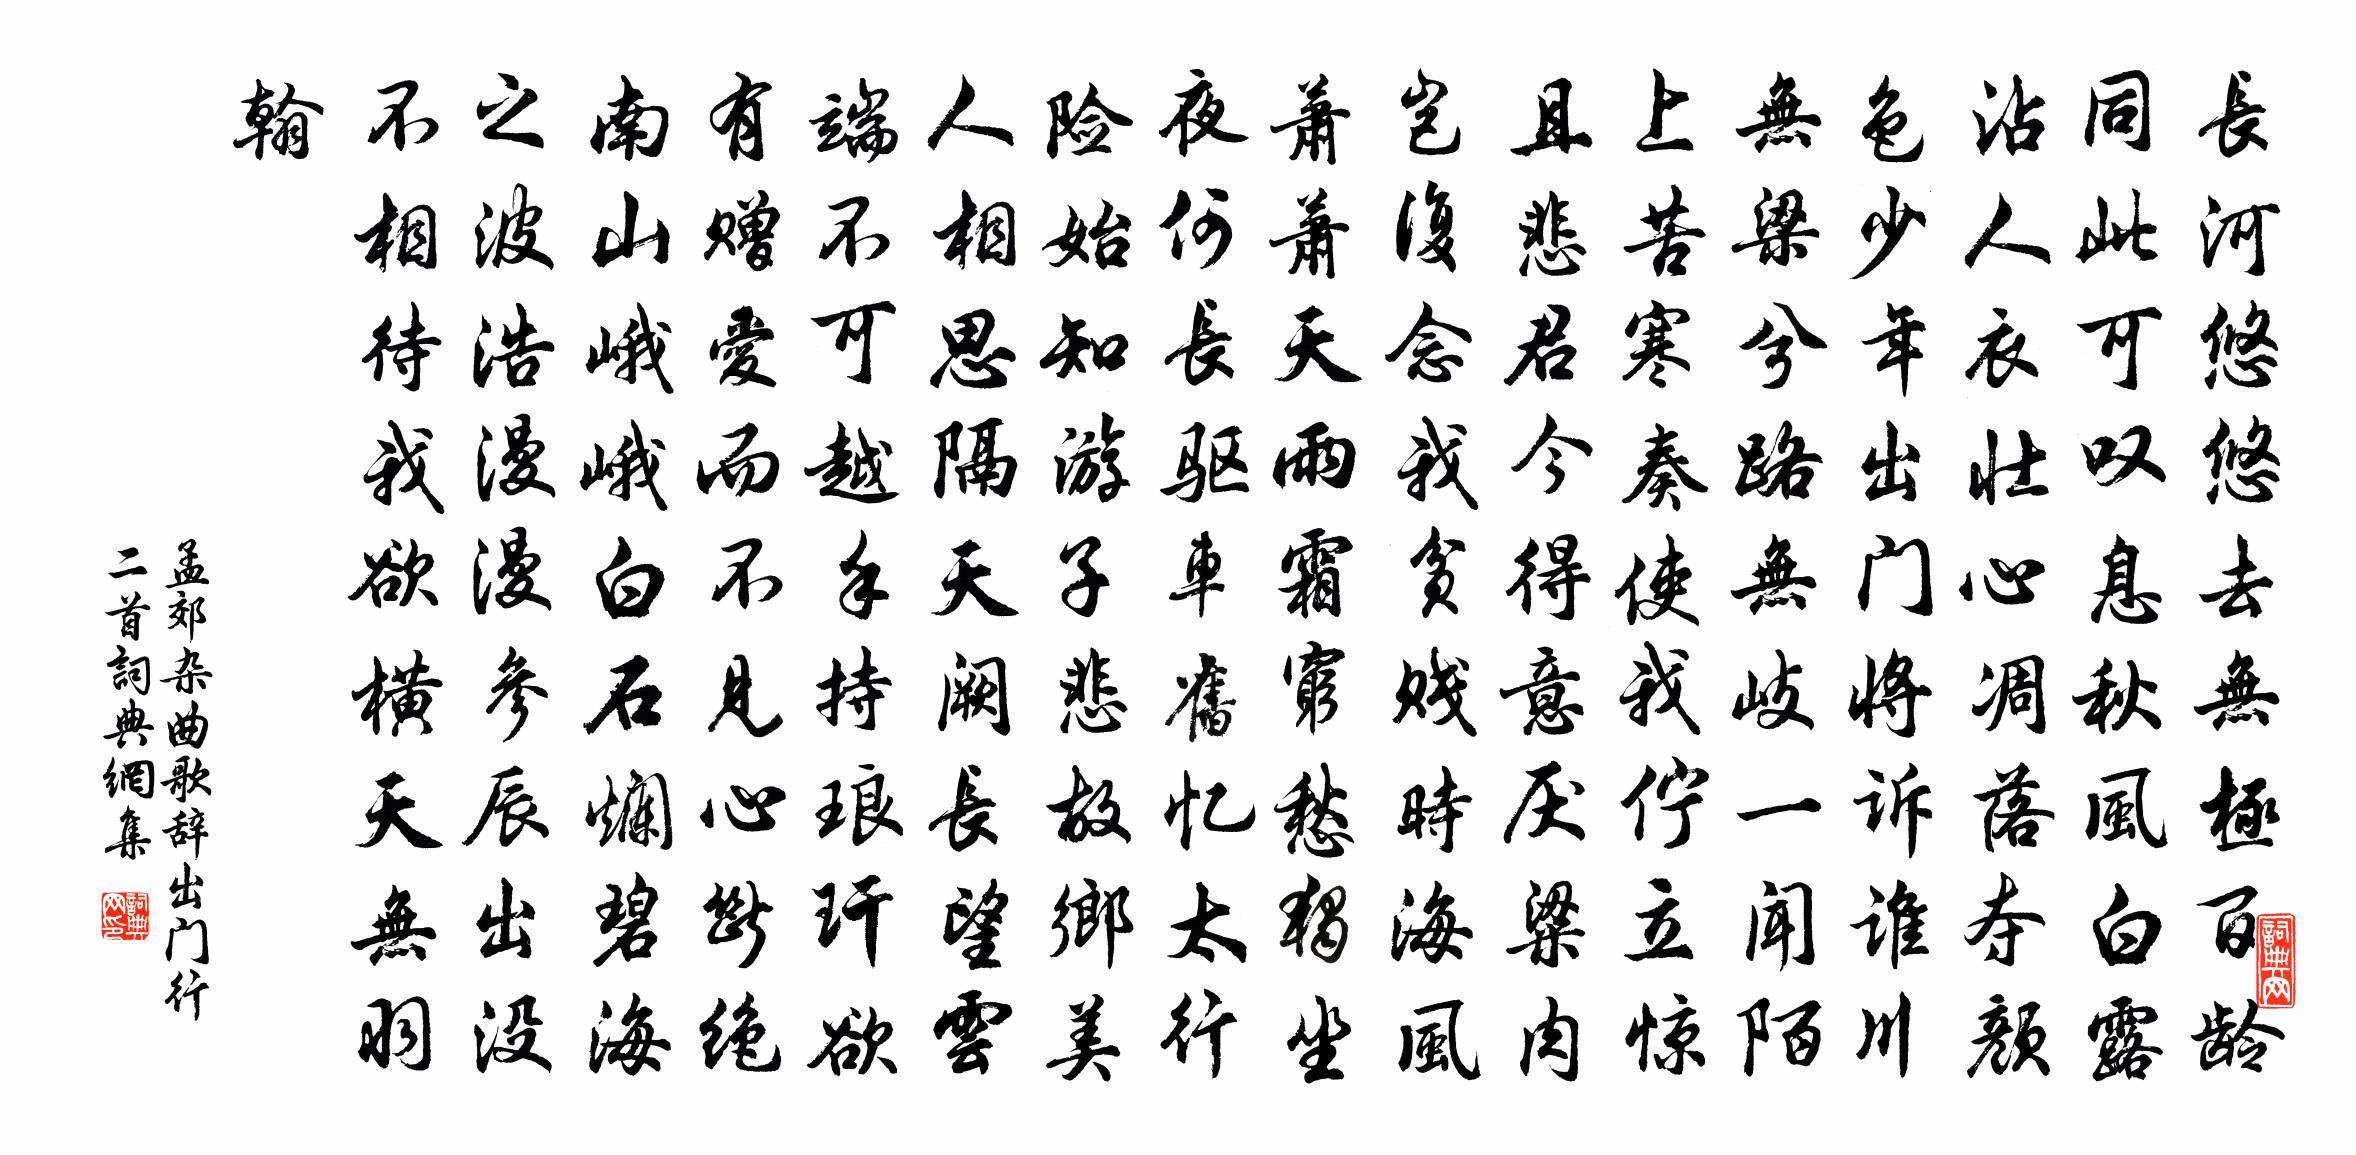 長河悠悠去無極百龄
同此可叹息秋風白露
沾人衣壮心凋落夺颜
色少年出门将诉谁川
無梁兮路無岐一闻陌
上苦寒奏使我佇立惊
且悲君今得意厌粱肉
岂復念我贫贱時海風
蕭蕭天雨霜窮愁獨坐
夜何長驱車舊忆太行
险始知游子悲故鄉美
人相思隔天阙長望雲
端不可越手持琅玕欲
有赠愛而不見心斷绝
南山峨峨白石爛碧海
之波浩漫漫参辰出没
不相待我欲横天無羽
翰
孟郊杂曲歌辞出门行
二首詞典網集
詞典网
詞典网印